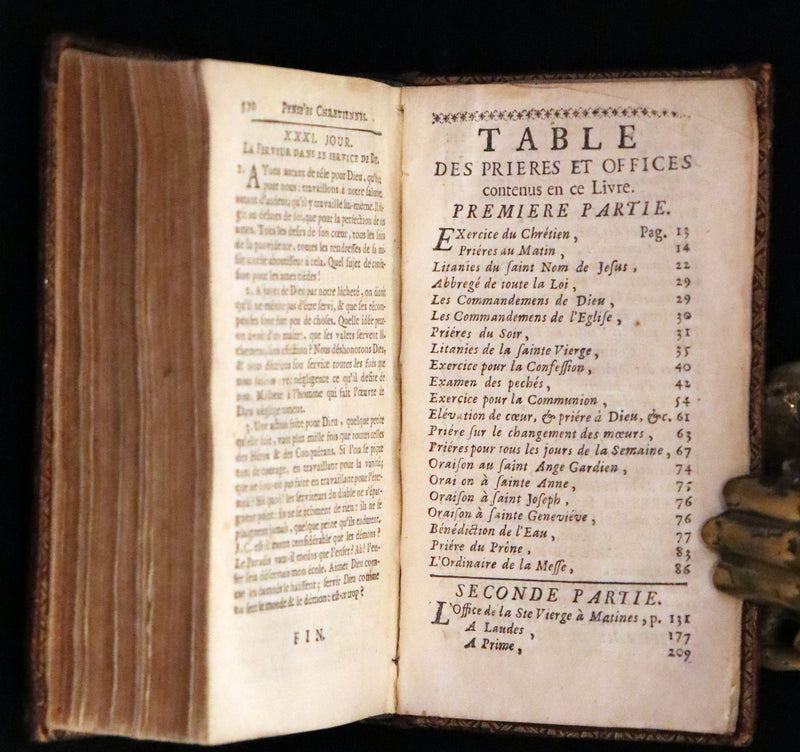 520 PENSÉES CHRETIENNES.
XXXI. JOUR.
LA FERVEUR DANS LE SERVICE DE DIEU.
1. AYons autant de zéle pour Dieu, qu'il a
pour nous: travaillons à notre salut
autant d'ardeur, qu'il y travaille lui-même. Il
au dehors de soi, que pour la perfection de
ames. Tous les desirs de son cœur, tous les soins
de la providence, toutes les tendresses de sa
aboutissent à cela. Quel sujet de
sion pour les ames tiédes!
2. A juger de Dieu par notre lâcheté, on diroit
qu'il ne mérite pas d'être servi, & que ses
penses sont peu de choses. Quelle idée
on d'un maître, que ses valets servent
affection? Nous deshonorons Dieu,
& nous son service toutes les fois que
nous faisons avec négligence ce qu'il desire de
nous. Malheur à l'homme qui fait l'œuvre de
Dieu négligemment.
3. Une action faite pour Dieu, quelque petite
qu'elle soit, vaut plus mille fois que toutes celles
des Héros & des Conquérans. Si l'on se pique
de courage, en travaillant pour la vanité;
que ne doit-on pas faire en travaillant pour l'éter-
nité? Si les serviteurs du diable ne
point: ils ne se plaignent de rien: ils ne se
jamais, quelque peine qu'ils endurent.
J. C. est-il moins considérable que les démons?
Le Paradis vaut-il moins que l'enfer? Ah! l'en-
fer sera désormais mon école. Aimer Dieu com-
me les damnés le haïssent; servir Dieu comme
on sert le monde & le démon: est-ce trop?
FIN.
TABLE
DES PRIERES ET OFFICES
contenus en ce Livre.
PREMIERE PARTIE.
EXercice du Chrétien, Pag. 13
Priéres au Matin, 14
Litanies du saint Nom de Jesus, 22
Abbregé de toute la Loi, 29
Les Commandemens de Dieu, 29
Les Commandemens de l'Eglise, 30
Priéres du Soir, 31
Litanies de la sainte Vierge, 35
Exercice pour la Confession, 40
Examen des pechés, 42
Exercice pour la Communion, 54
Elévation de cœur, & priére à Dieu, &c. 61
Priére sur le changement des mœurs, 63
Priéres pour tous les jours de la Semaine, 67
Oraison au saint Ange Gardien, 74
Orai on à sainte Anne, 75
Oraison à saint Joseph, 76
Oraison à sainte Geneviéve, 76
Bénédiction de l'Eau, 77
Priére du Prône, 83
L'Ordinaire de la Messe, 86
SECONDE PARTIE.
L'Office de la Ste Vierge à Matines, p. 131
A Laudes, 177
A Prime, 209